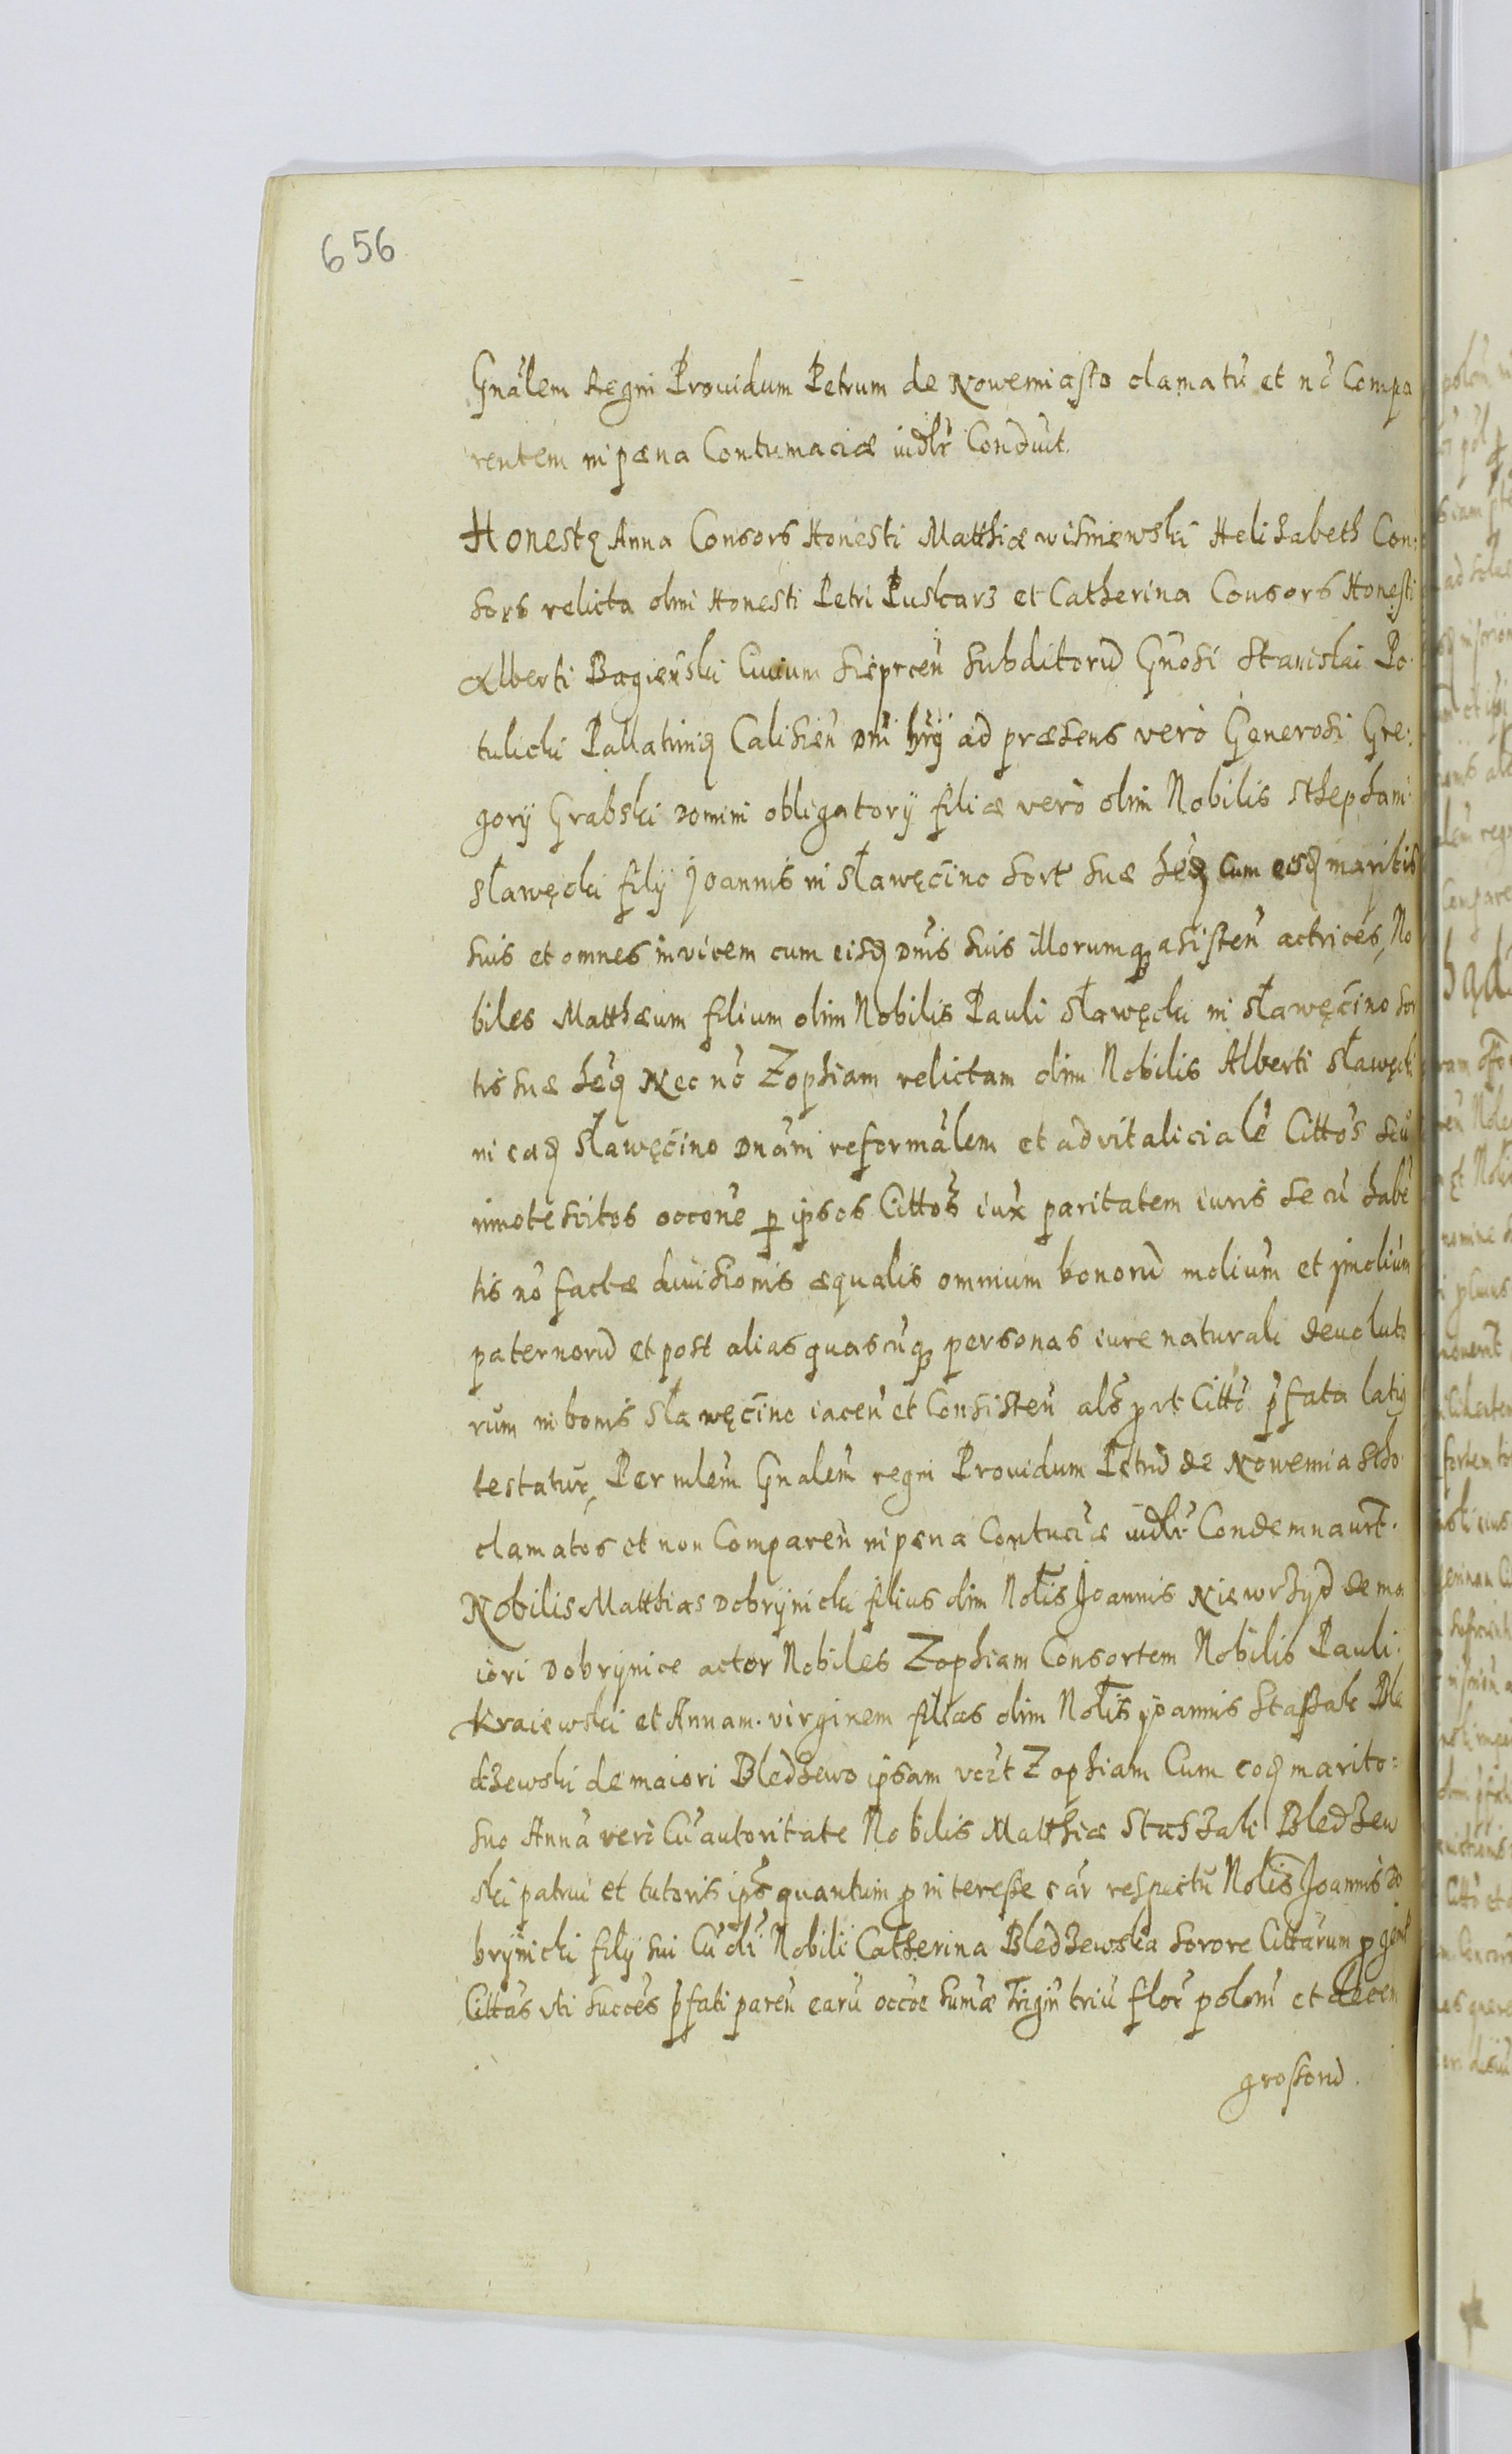 656
Gnalem Regni Prouidum Petrum de Nowemiasto clamatū et nō Compa
rentem in pæna Contumaciæ iudlr Conduit.
Honestę Anna Consors Honesti Matthiæ wisniewski Helizabeth Con:
sors relicta olim Honesti Petri Puskarz et Catherina Consors Honesti
Alberti Bagieński Ciuium Sieprcen̄ subditorū Gnosi Stanislai Po-
tulicki Pallatiniq Calisien̄ Dni hrij ad præsens verò Generosi Gre:
gorij Grabski Domini obligatorij filiæ verò olim Nobilis Stephani
Sławęcki filij Joannis in Sławęcino sort suæ hęq cum eisq maritis
suis et omnes invicem cum eisq Dnis suis illorumq asisten̄ actrices, No
biles Matthæum filium olim Nobilis Pauli Sławęcki in Sławęcino sor
tis suæ hęq Nec nō Zophiam relictam olim Nobilis Alberti Sławęcki
in eaq Sławęcino Dnām reformālem et advitalicialē Cittōs seu
innotescitos occōne p ipsos Cittōs iux paritatem iuris se cū habē
tis nō factæ diuisionis æqualis omnium bonorū molium et jmolium
paternorū et post alias quascūq personas iure naturali deuoluto
rum in bonis Sławęcino iacen̄ et Consisten̄ als prt Cittō pfata latiq
testatur, Per mlem Gnalem regni Prouidum Petrū de Nowemiastho
clamatos et non Comparen̄ in pæna Contuciæ iudlr Condemnaurt.
Nobilis Matthias Dobrynicki filius olim Nolis Joannis Niewrzyd de ma
iori Dobrynice actor Nobiles Zophiam Consortem Nobilis Pauli
Kraiewski et Annam virginem filias olim Nolis joannis Staszale Ble
dzewski de maiori Bledzewo ipsam vert Zophiam Cum eoq marito
suo Annā verò Cū autoritate Nobilis Matthiæ Staszali Bledzew
ski patrui et tutoris ips quantum p interesse eār respectu Nolis Joannis Do
brynicki filij sui Cū oli Nobili Catherina Bledzewska sorore Cittarum pgent
Cittās vti succes pfati paren̄ earū occōe sumæ Trigin triū flor polon̄ et decem
grossorū.